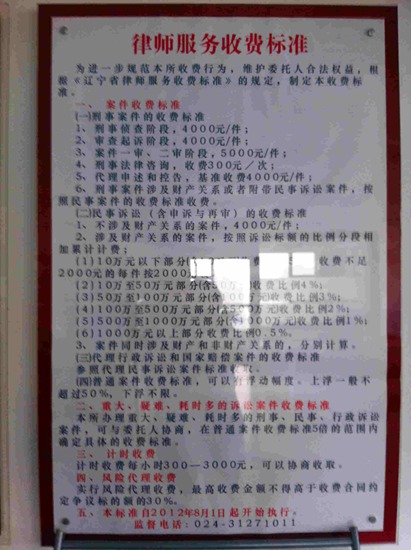 律师服务收费标准
为进一步规范本所收费行为，维护委托人合法权益，根
据《辽宁省律师服务收费标准》的规定，制定本收费标
准。
一、案件收费标准
(一)刑事案件的收费标准
1、刑事侦查阶段，4000元/件；
2、审查起诉阶段，4000元/件；
3、案件一审、二审阶段，5000元/件；
4、刑事法律咨询，收费300元／次；
5、代理申述和控告，基准收费4000元/件；
6、刑事案件涉及财产关系或者附带民事诉讼案件，按
照民事案件的收费标准收费。
(二)民事诉讼（含申诉与再审）的收费标准
1、不涉及财产关系的案件，4000元/件；
2、涉及财产关系的案件，按照诉讼标额的比例分段相
加累计计费；
(1)10万元以下部分 费 收费不足
2000元的每件按2000
(2)10万至50万元部分(含50万元)收费比例4%；
(3)50万至100万元部分(含100万元)收费比例3%；
(4)100万至500万元部分(含500万元)收费比例2%；
(5)500万至1000万元部分(含1000万元)收费比例1%；
(6)1000万元以上部分收费比例0.5%。
3、案件同时涉及财产和非财产关系的，分别计算。
(三)代理行政诉讼和国家赔偿案件的收费标准
参照代理民事诉讼案件标准收费。
(四)普通案件收费标准，可以有浮动幅度。上浮一般不
超过50%，下浮不限。
二、重大、疑难、耗时多的诉讼案件收费标准
本所办理重大、疑难、耗时多的刑事、民事、行政诉讼
案件，可与委托人协商，在普通案件收费标准5倍的范围内
确定具体的收费标准。
三、计时收费
计时收费每小时300—3000元，可以协商收取。
四、风险代理收费
实行风险代理收费，最高收费金额不得高于收费合同约
定争议标的额的30%。
五、本标准自2012年8月1日起开始执行。
监督电话：024-31271011